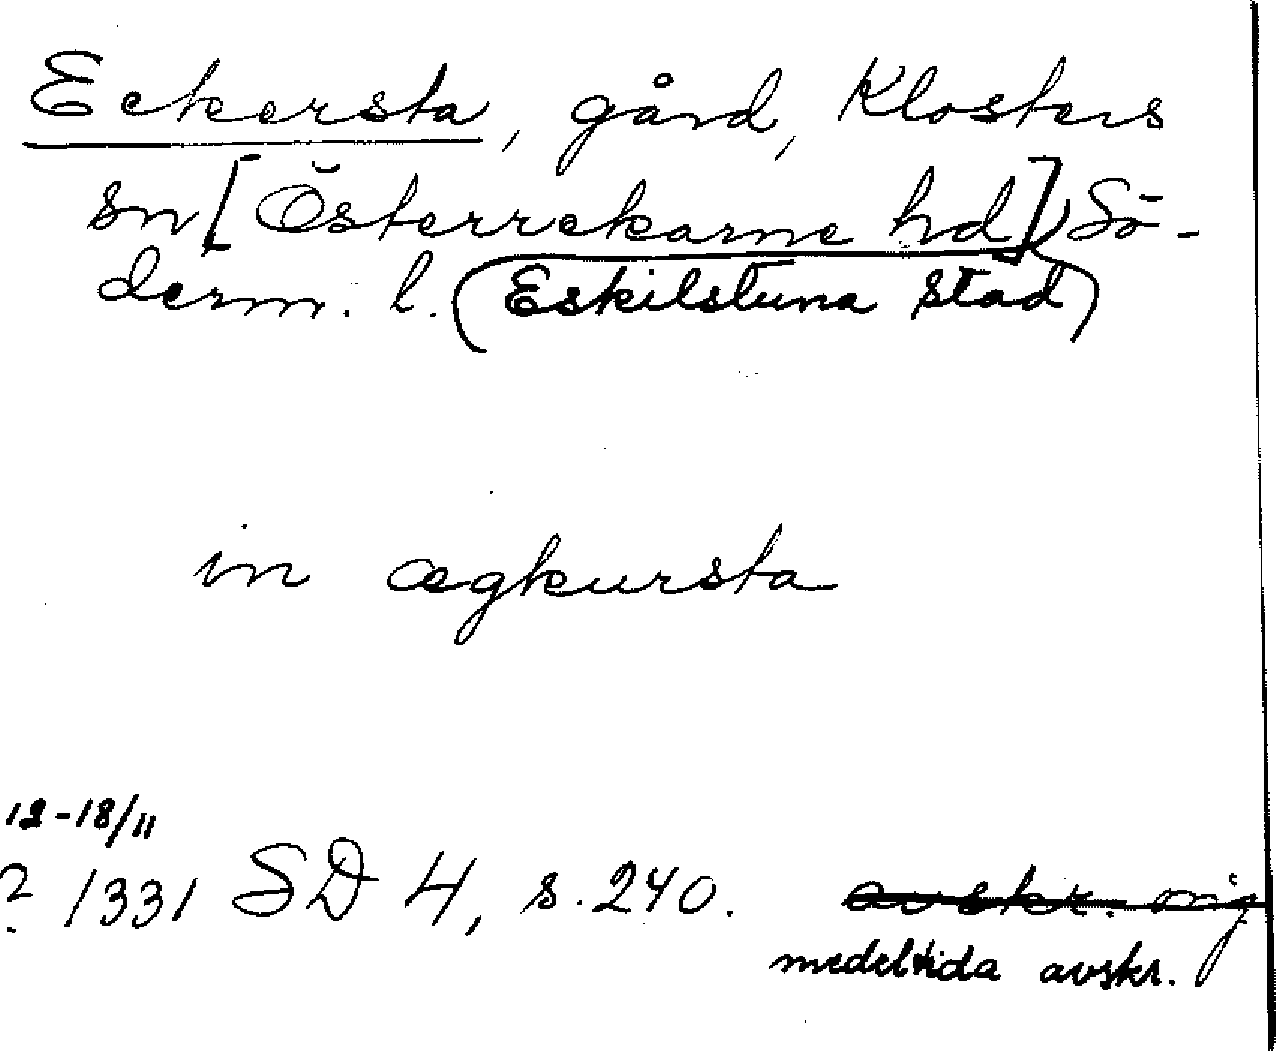 Eckersta, gård, Klosters
sn [Österrekarne hd] Sö-
derm. l. (Eskilstuna stad)
in ægkursta
12-18/11
? 1331 SD 4, s. 240. avskr. orig
medeltida avskr.